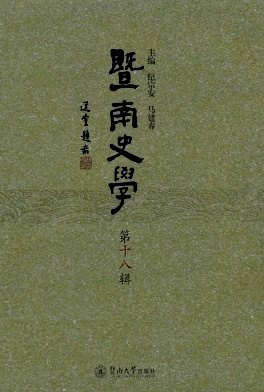 主编 纪宗安 马建春
暨南史學
選堂題耑
第十八辑
暨南大学出版社